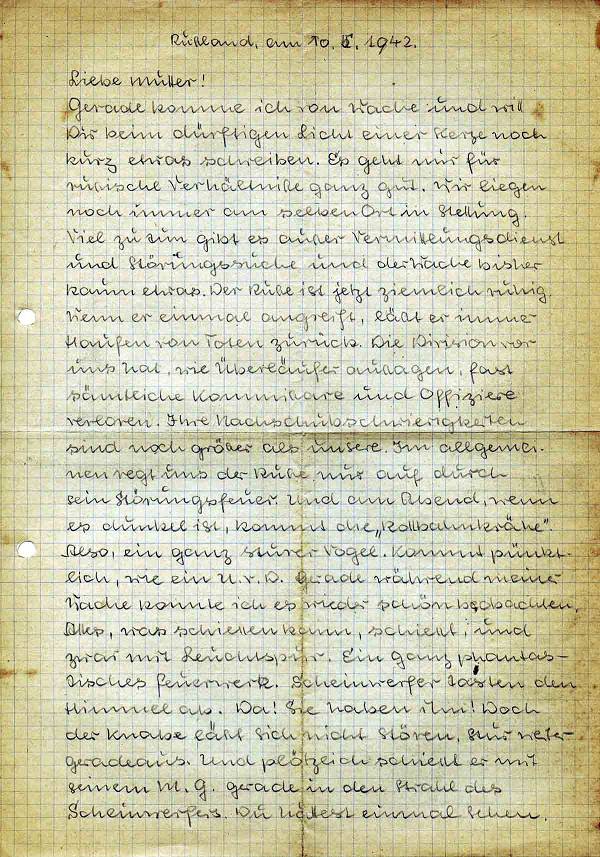 Rußland, am 10. 5. 1942.
Liebe Mutter!
Gerade komme ich von Wache und will
Dir beim dürftigen Licht einer Kerze noch
kurz etwas schreiben. Es geht mir für
rußische Verhältniße ganz gut. Wir liegen
noch immer am selben Ort in Stellung.
Viel zu tun gibt es außer Vermittlungsdienst
und Störungssuche und der Wache bisher
kaum etwas. Der Ruße ist jetzt ziemlich ruhig.
Wenn er einmal angreift, läßt er immer
Haufen von Toten zurück. Die Division vor
uns hat, wie Überläufer aussagen, fast
sämtliche Kommißare und Offiziere
verloren. Ihre Nachschubschwierigkeiten
sind noch größer als unsere. Im allgemei-
nen regt uns der Ruße nur auf durch
sein Störungsfeuer. Und am Abend, wenn
es dunkel ist, kommt die „Rollbahnkrähe".
Also, ein ganz sturer Vogel. Kommt pünkt-
lich, wie ein U.v.D. Gerade während meiner
Wache konnte ich es wieder schön beobachten.
Alles, was schießen kann, schießt, und
zwar mit Leuchtspur. Ein ganz phantas-
tisches Feuerwerk. Scheinwerfer tasten den
Himmel ab. Da! Sie haben ihn! Doch
der Knabe läßt sich nicht stören, stur weiter
geradeaus. Und plötzlich schießt er mit
seinem M.G. gerade in den Strahl des
Scheinwerfers. Du hättest einmal sehen,